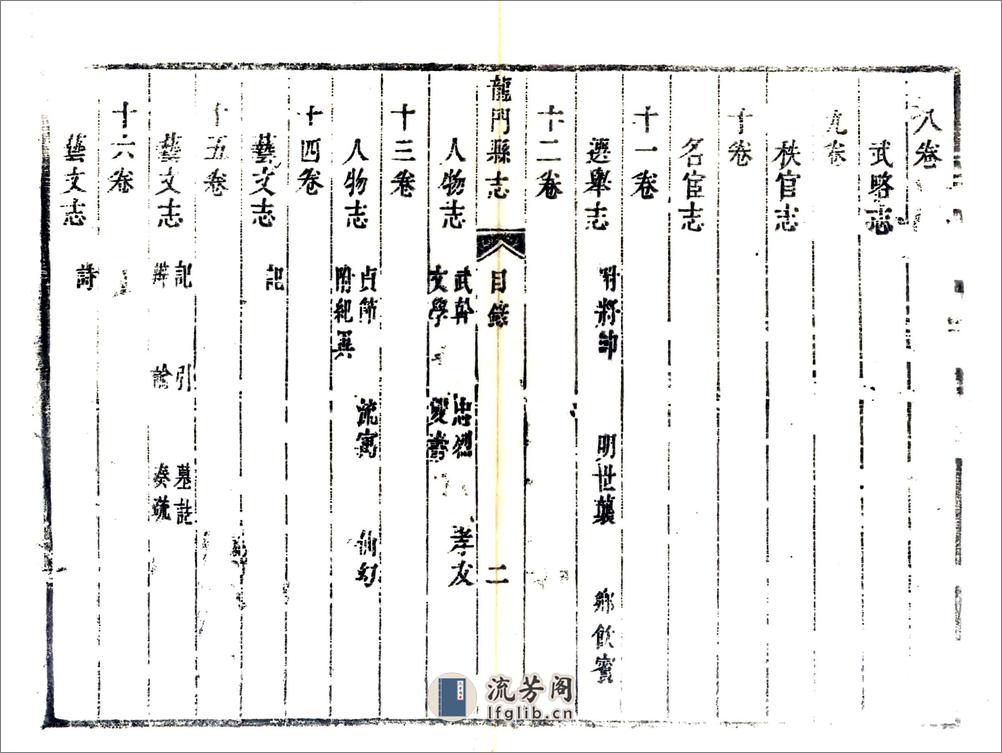 八卷
武略志
九卷
秩官志
十卷
名宦志
十一卷
選舉志 附將帥 明世襲 鄉飲賓
十二卷
龍門縣志 目錄 二
人物志 武幹 忠烈 孝友
文學
十三卷
人物志 貞節 流寓 仙幻
附紀異
十四卷
藝文志 記
十五卷
藝文志 記 引 墓誌
辨 論 奏疏
十六卷
藝文志 詩
流芳阁
lfglib.cn